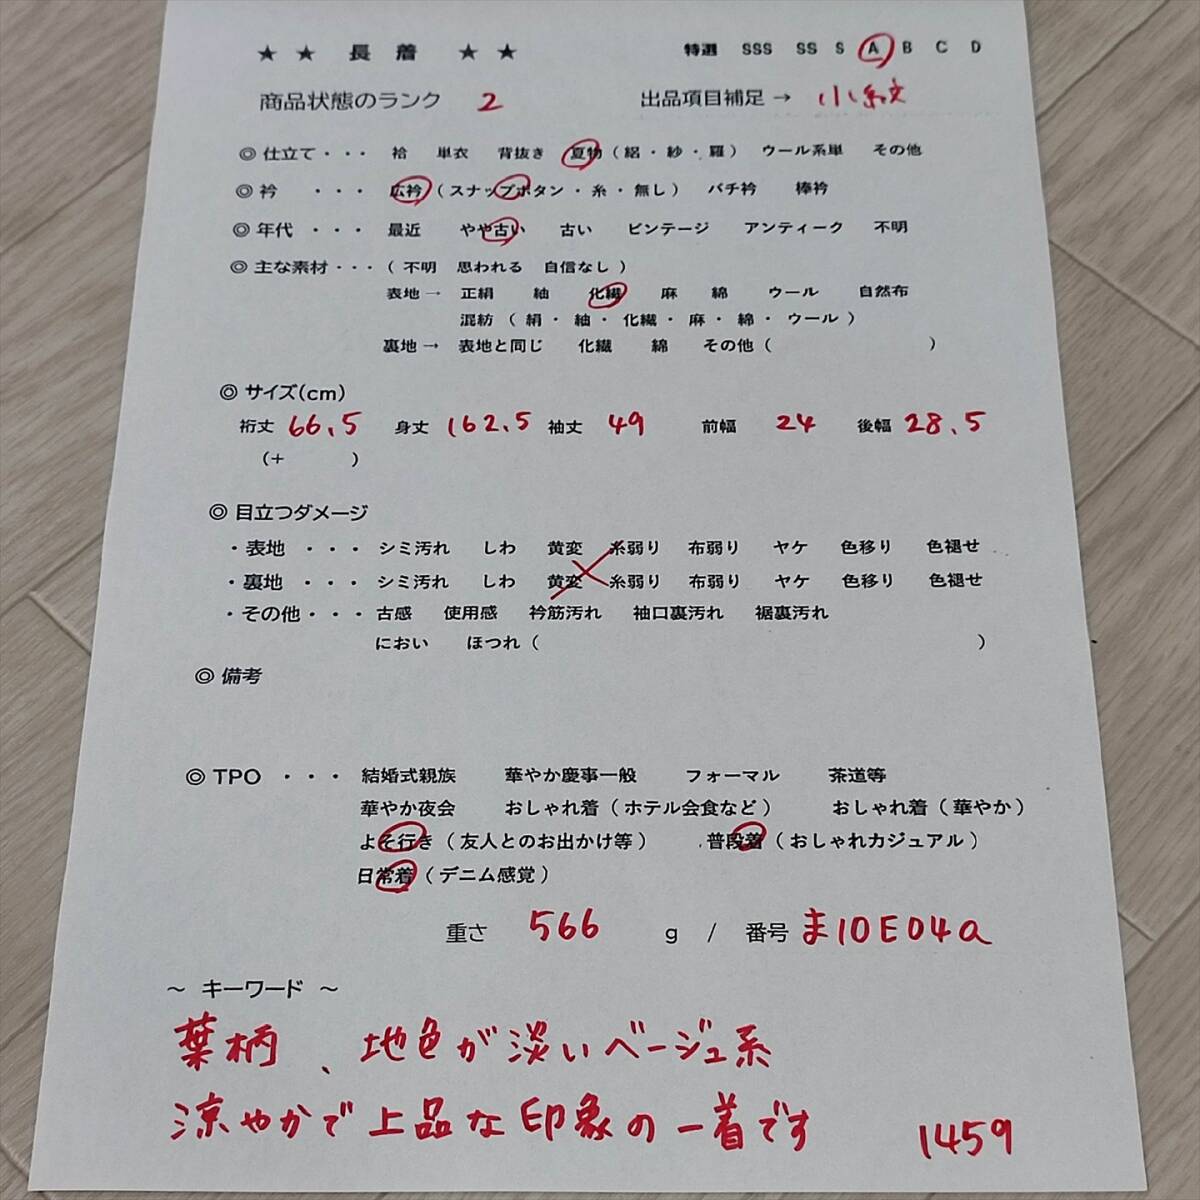 ★ ★ 長 着 ★ ★ 特選 SSS SS S A B C D
商品状態のランク 2 出品項目補足 → 小紋
◎ 仕立て・・・ 袷 単衣 背抜き 夏物 ( 絽・紗・羅 ) ウール系単 その他
◎ 衿 ・・・ 広衿 ( スナップボタン・糸・無し ) バチ衿 棒衿
◎ 年代 ・・・ 最近 やや古い 古い ビンテージ アンティーク 不明
◎ 主な素材・・・ ( 不明 思われる 自信なし )
表地 → 正絹 紬 化繊 麻 綿 ウール 自然布
混紡 ( 絹・紬・化繊・麻・綿・ウール )
裏地 → 表地と同じ 化繊 綿 その他 ( )
◎ サイズ(cm)
裄丈 66.5 身丈 162.5 袖丈 49 前幅 24 後幅 28.5
(+ )
◎ 目立つダメージ
・表地 ・・・ シミ汚れ しわ 黄変 糸弱り 布弱り ヤケ 色移り 色褪せ
・裏地 ・・・ シミ汚れ しわ 黄変 糸弱り 布弱り ヤケ 色移り 色褪せ
・その他・・・ 古感 使用感 衿筋汚れ 袖口裏汚れ 裾裏汚れ
におい ほつれ ( )
◎ 備考
◎ TPO ・・・ 結婚式親族 華やか慶事一般 フォーマル 茶道等
華やか夜会 おしゃれ着 ( ホテル会食など ) おしゃれ着 ( 華やか )
よそ行き ( 友人とのお出かけ等 ) 普段着 ( おしゃれカジュアル )
日常着 ( デニム感覚 )
重さ 566 g / 番号 ま10E04a
~ キーワード ~
葉柄、地色が淡いベージュ系
涼やかで上品な印象の一着です 1459